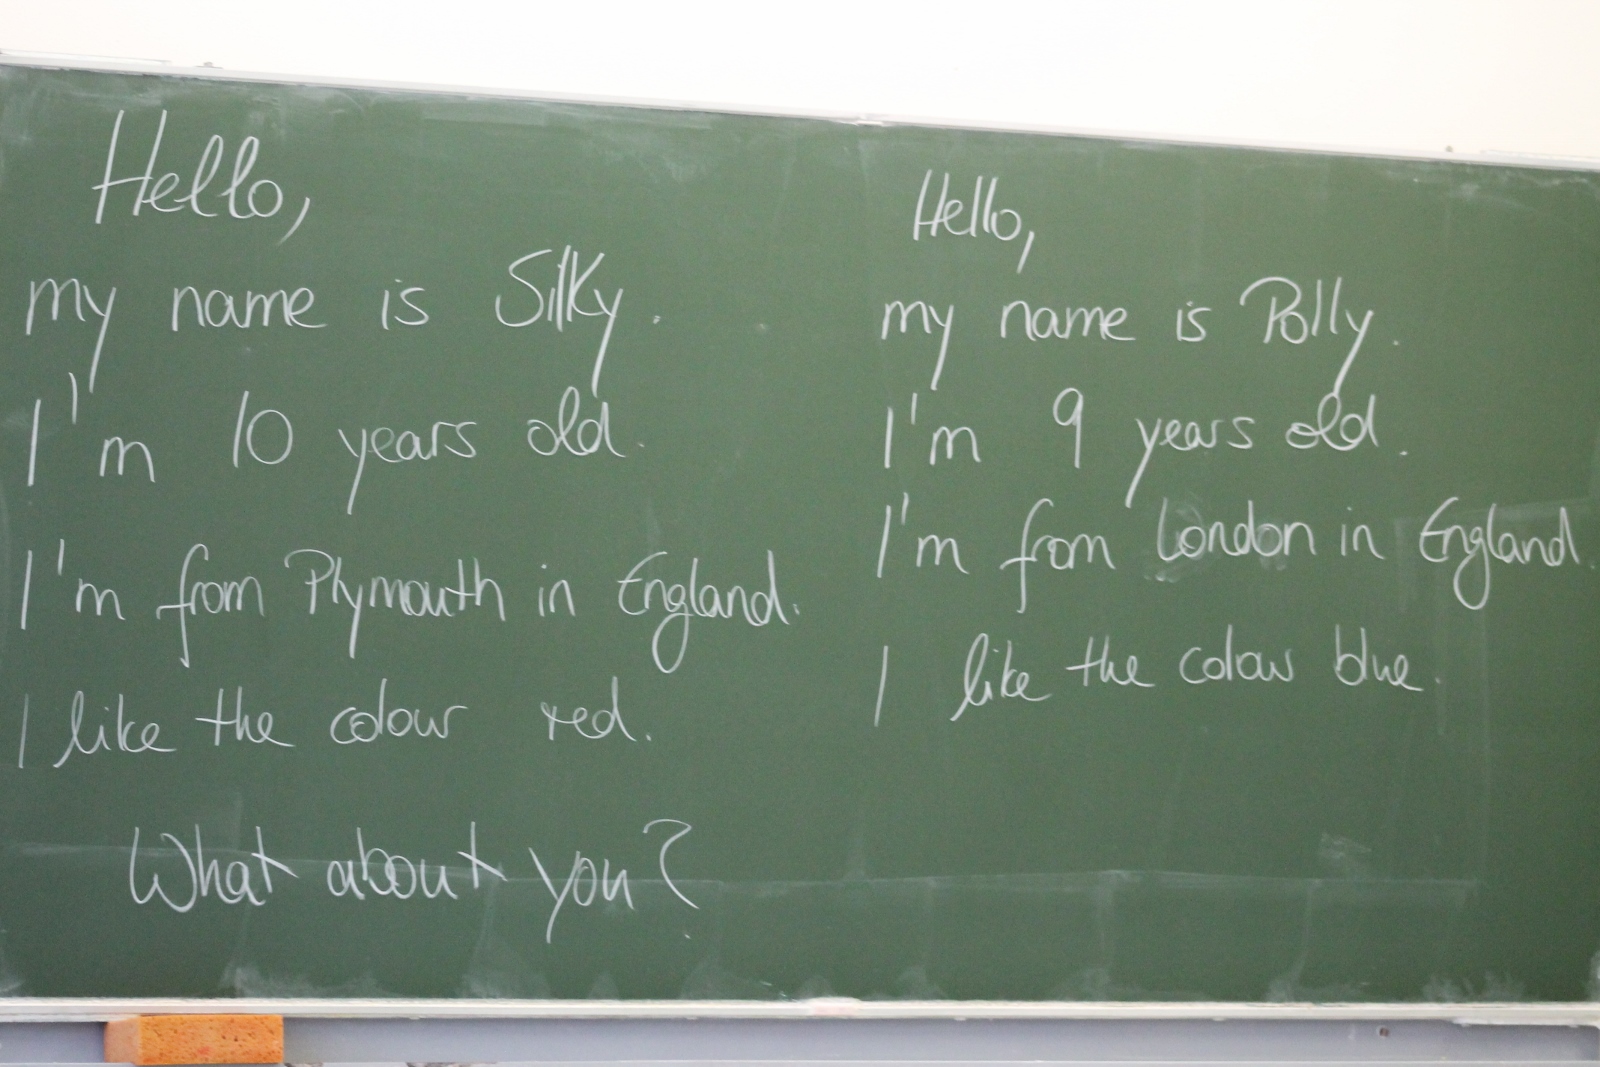 Hello,
my name is Silky.
I'm 10 years old.
I'm from Plymouth in England.
I like the colour red.
What about you?
Hello,
my name is Polly.
I'm 9 years old.
I'm from London in England.
I like the colour blue.